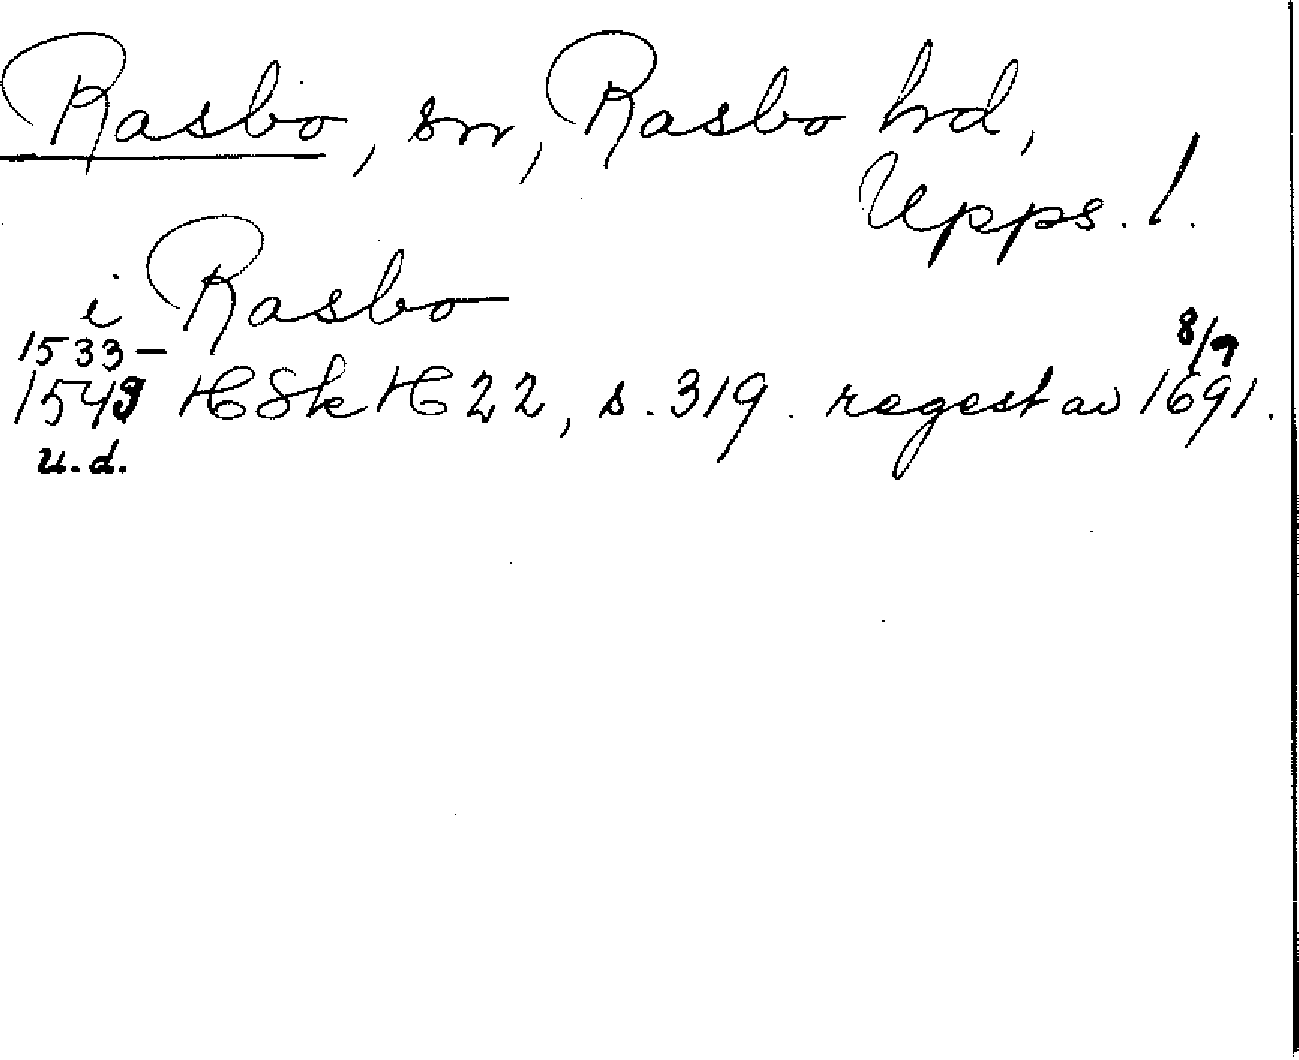 Rasbo, sn, Rasbo hd,
Upps. l.
i Rasbo
1533-
8/9
1543 HSk H 22, s. 319. regest av 1691.
u.d.